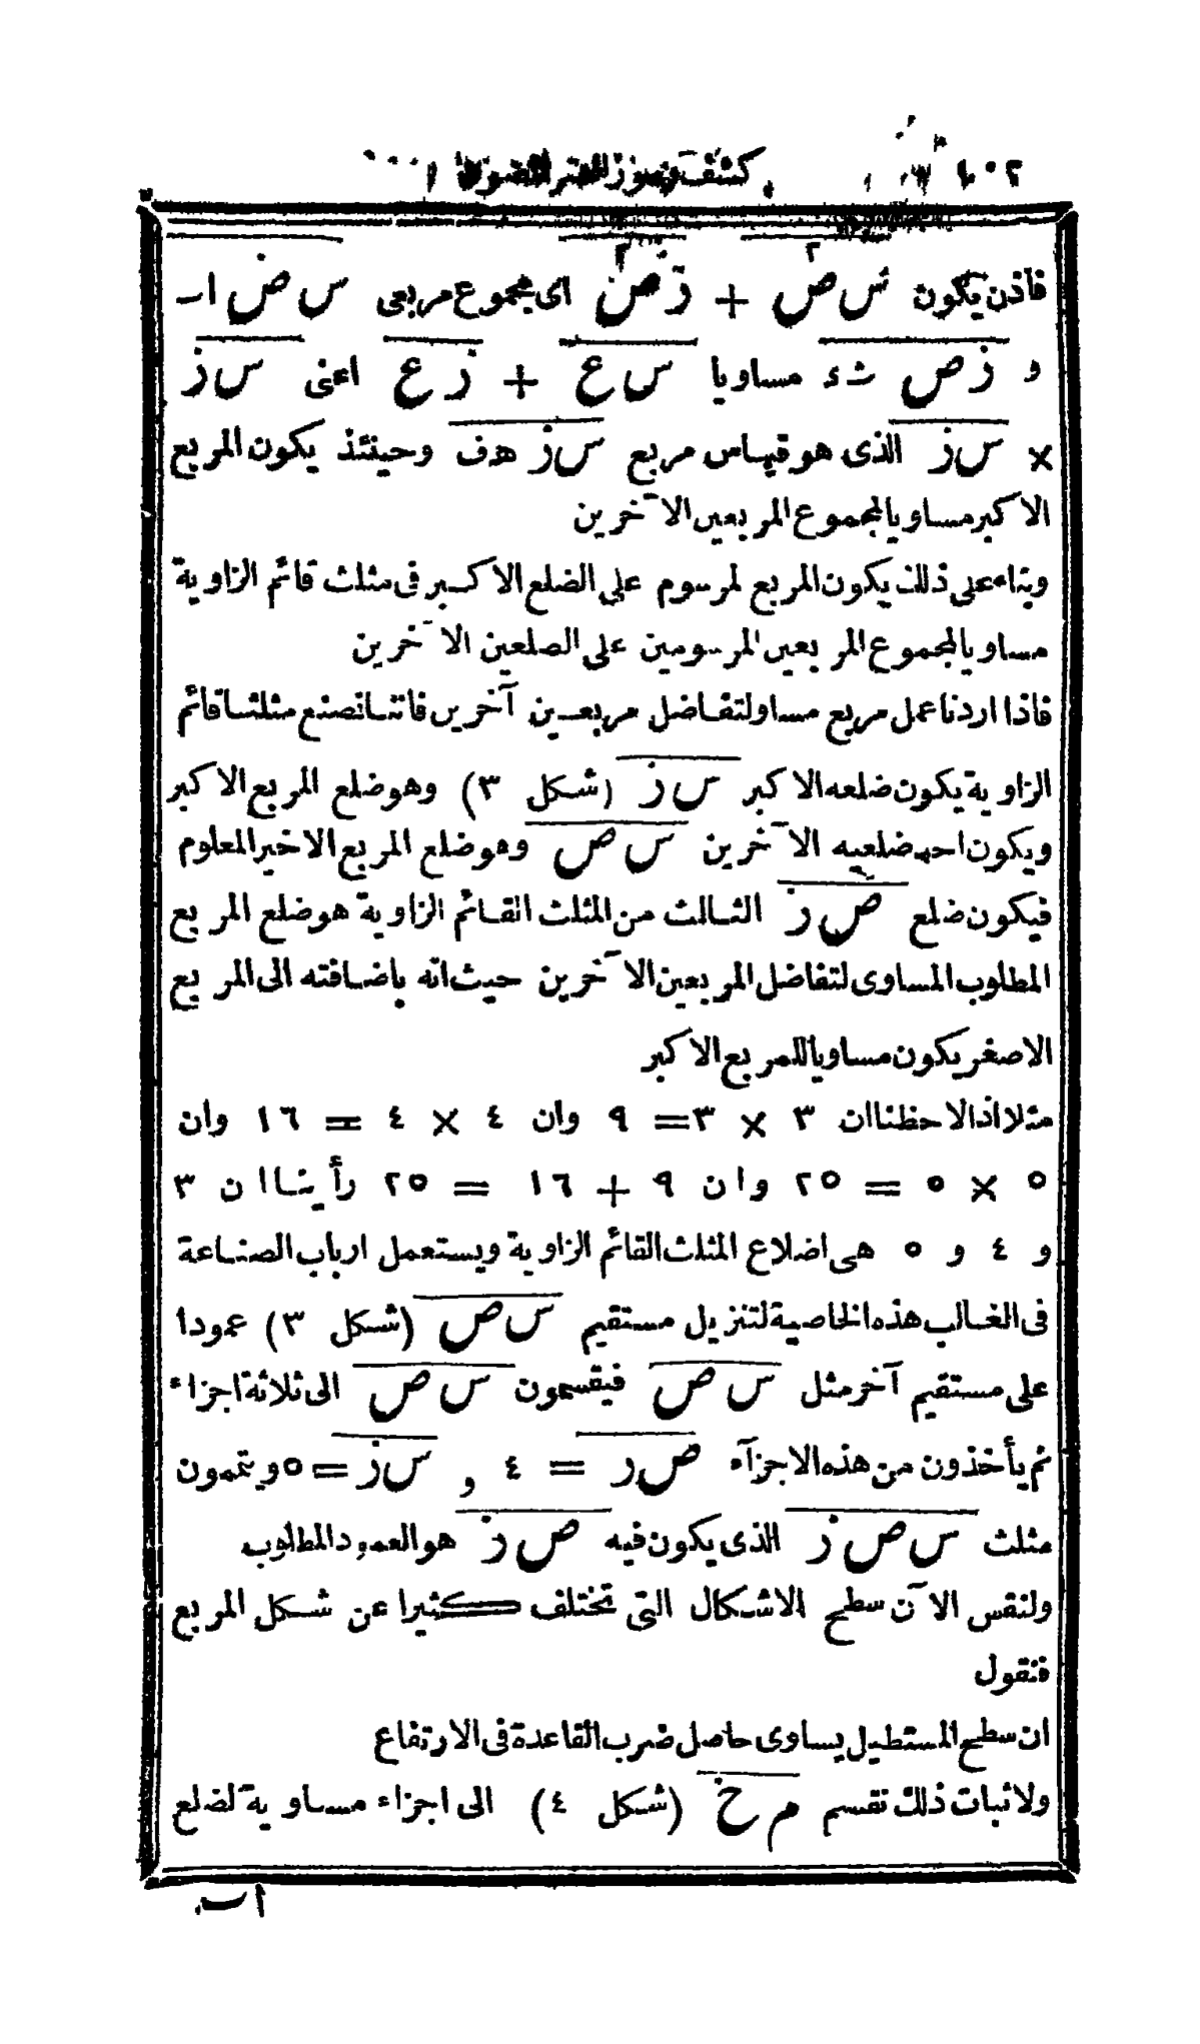 ١٠٢ كشف رموز السر المصون
فاذن يكون س ص٢ + ز ص٢ اى مجموع مربعى س ص ا ـ
و ز ص ث ء مساويا س ع + ز ع اعنى س ز
× س ز الذى هو قياس مربع س ز ه ف وحينئذ يكون المربع
الاكبر مساويا لمجموع المربعين الآخرين
وبناء على ذلك يكون المربع لمرسوم على الضلع الاكبر فى مثلث قائم الزاوية
مساويا لمجموع المربعين المرسومين على الضلعين الآخرين
فاذا اردنا عمل مربع مساو لتفاضل مربعين آخرين فاننا نصنع مثلثا قائم
الزاوية يكون ضلعه الاكبر س ز (شكل ٣) وهو ضلع المربع الاكبر
ويكون احد ضلعيه الآخرين س ص وهو ضلع المربع الاخير المعلوم
فيكون ضلع ص ز الثالث من المثلث القائم الزاوية هو ضلع المربع
المطلوب المساوى لتفاضل المربعين الآخرين حيث انه باضافته الى المربع
الاصغر يكون مساويا للمربع الاكبر
مثلا اذا لاحظنا ان ٣ × ٣ = ٩ وان ٤ × ٤ = ١٦ وان
٥ × ٥ = ٢٥ وان ٩ + ١٦ = ٢٥ رأينا ان ٣
و ٤ و ٥ هى اضلاع المثلث القائم الزاوية ويستعمل ارباب الصناعة
فى الغالب هذه الخاصية لتنزيل مستقيم س ص (شكل ٣) عمودا
على مستقيم آخر مثل س ص فيقسمون س ص الى ثلاثة اجزاء
ثم يأخذون من هذه الاجزآء ص ر = ٤ و س ز = ٥ ويتممون
مثلث س ص ز الذى يكون فيه ص ز هو العمود المطلوب
ولنقس الآن سطح الاشكال التى تختلف كثيرا عن شكل المربع
فنقول
ان سطح المستطيل يساوى حاصل ضرب القاعدة فى الارتفاع
ولاثبات ذلك نقسم م خ (شكل ٤) الى اجزاء مساوية لضلع
ا ب